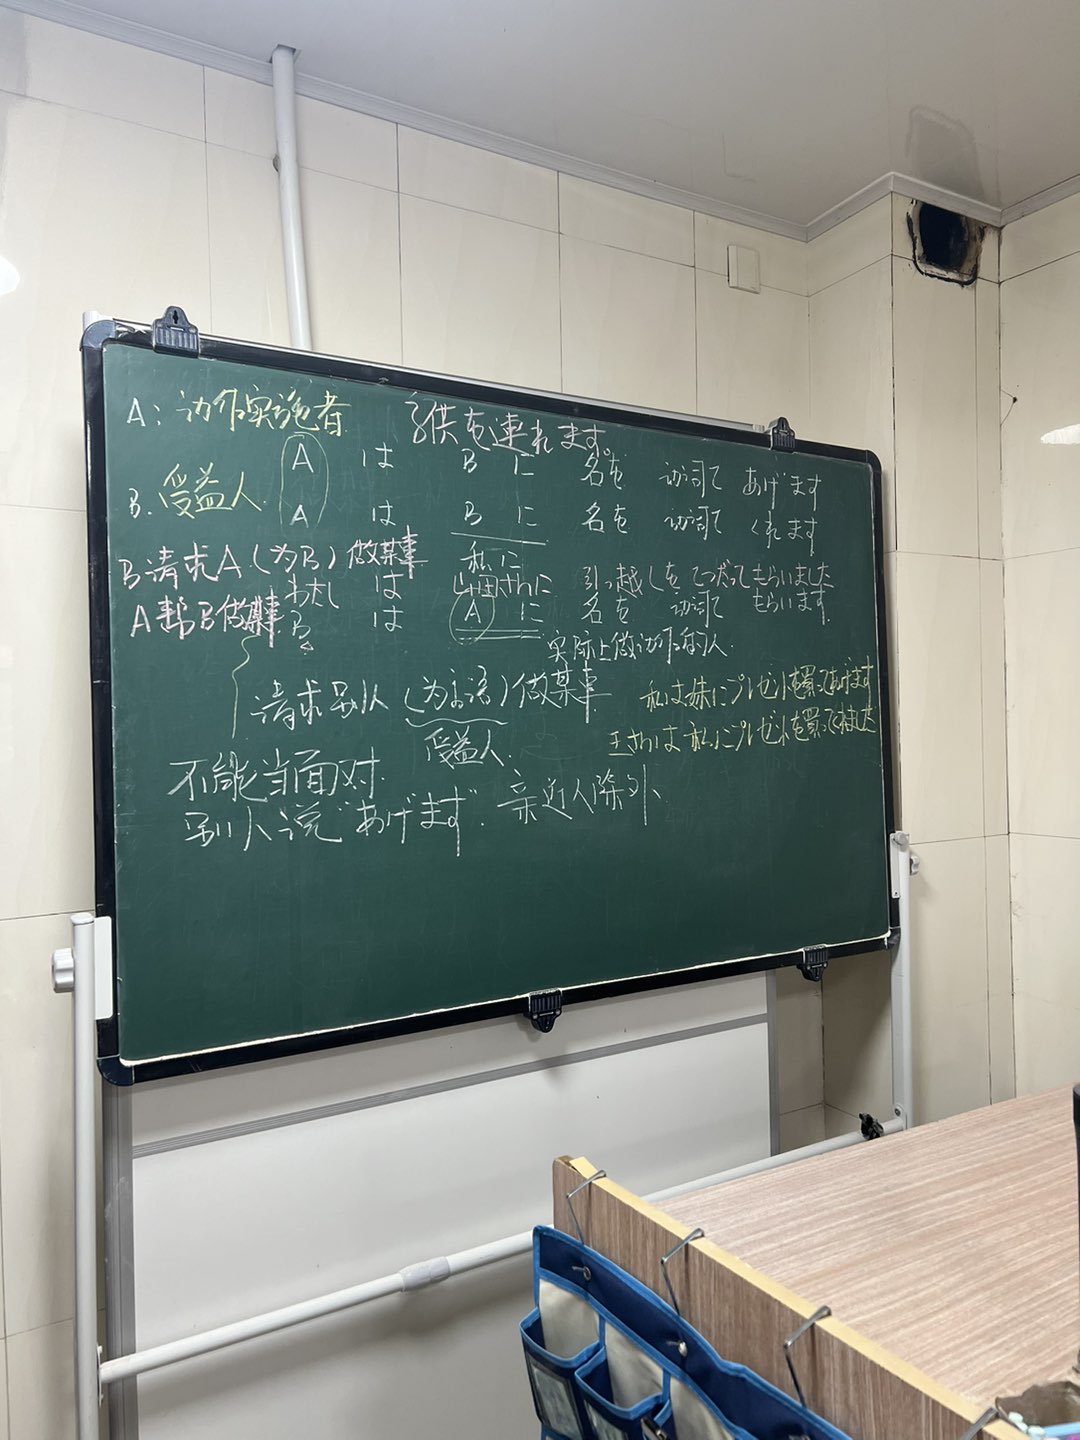 A：动作实施者
子供を連れます。
A は B に 名を 动词て あげます
B. 受益人.
A は B に 名を 动词て くれます
私に
B请求A（为B）做某事
わたし は 山田さんに 引っ越しを てつだってもらいました
A帮B做某事.
B は A に 名を 动词て もらいます.
实际上做动作的人.
请求别人（为主语）做某事
受益人.
私は妹にプレゼントを買ってあげます
王さんは私にプレゼントを買ってくれました
不能当面对.
别人说"あげます". 亲近人除外.